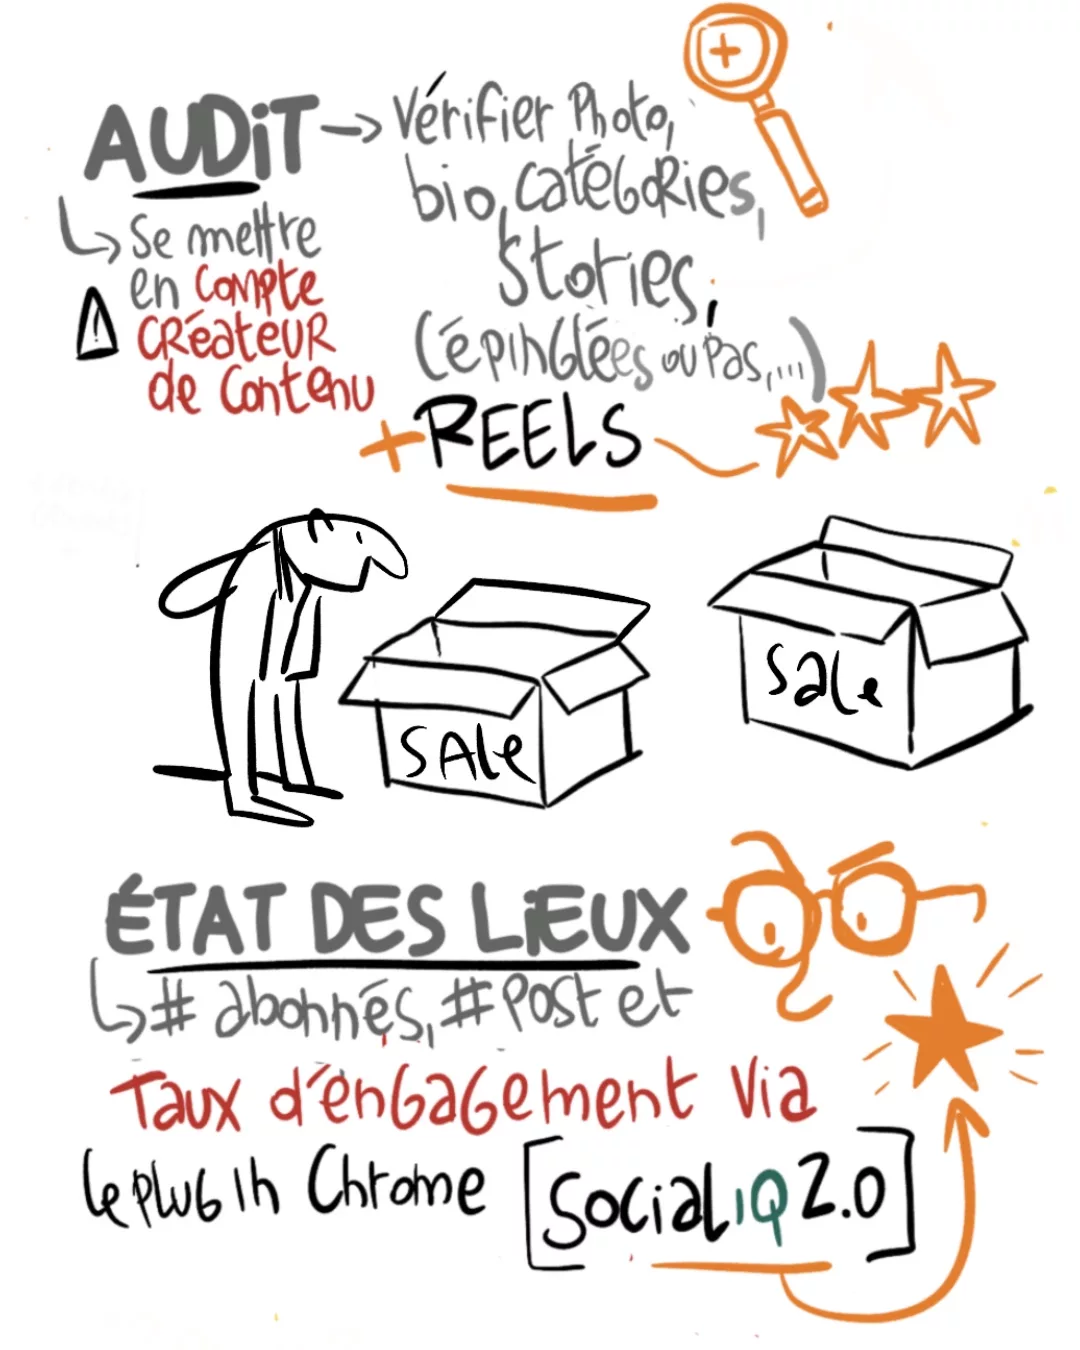 AUDIT → Vérifier Photo,
bio, catégories,
Stories,
(épinglées ou pas,...)
+ REELS
↳ Se mettre
en compte
créateur
de contenu
!
SALE
Sale
ÉTAT DES LIEUX
↳ # abonnés, # Post et
Taux d'engagement via
le plugin Chrome [Social IQ 2.0]